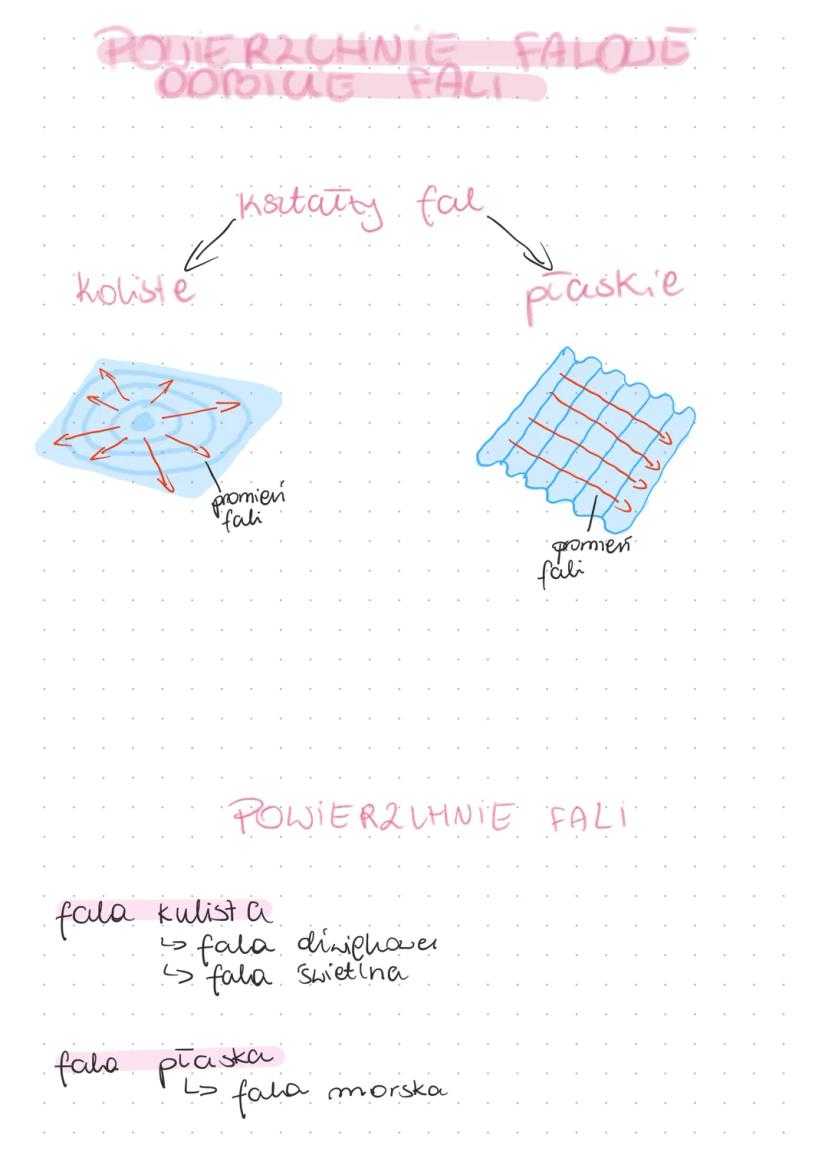 POWIERZCHNIE FALOWE
ODBICIE FALI
kształty fal
koliste
płaskie
promień
fali
promień
fali
POWIERZCHNIE FALI
fala kulista
↳ fala dźwiękowa
↳ fala świetlna
fala płaska
↳ fala morska